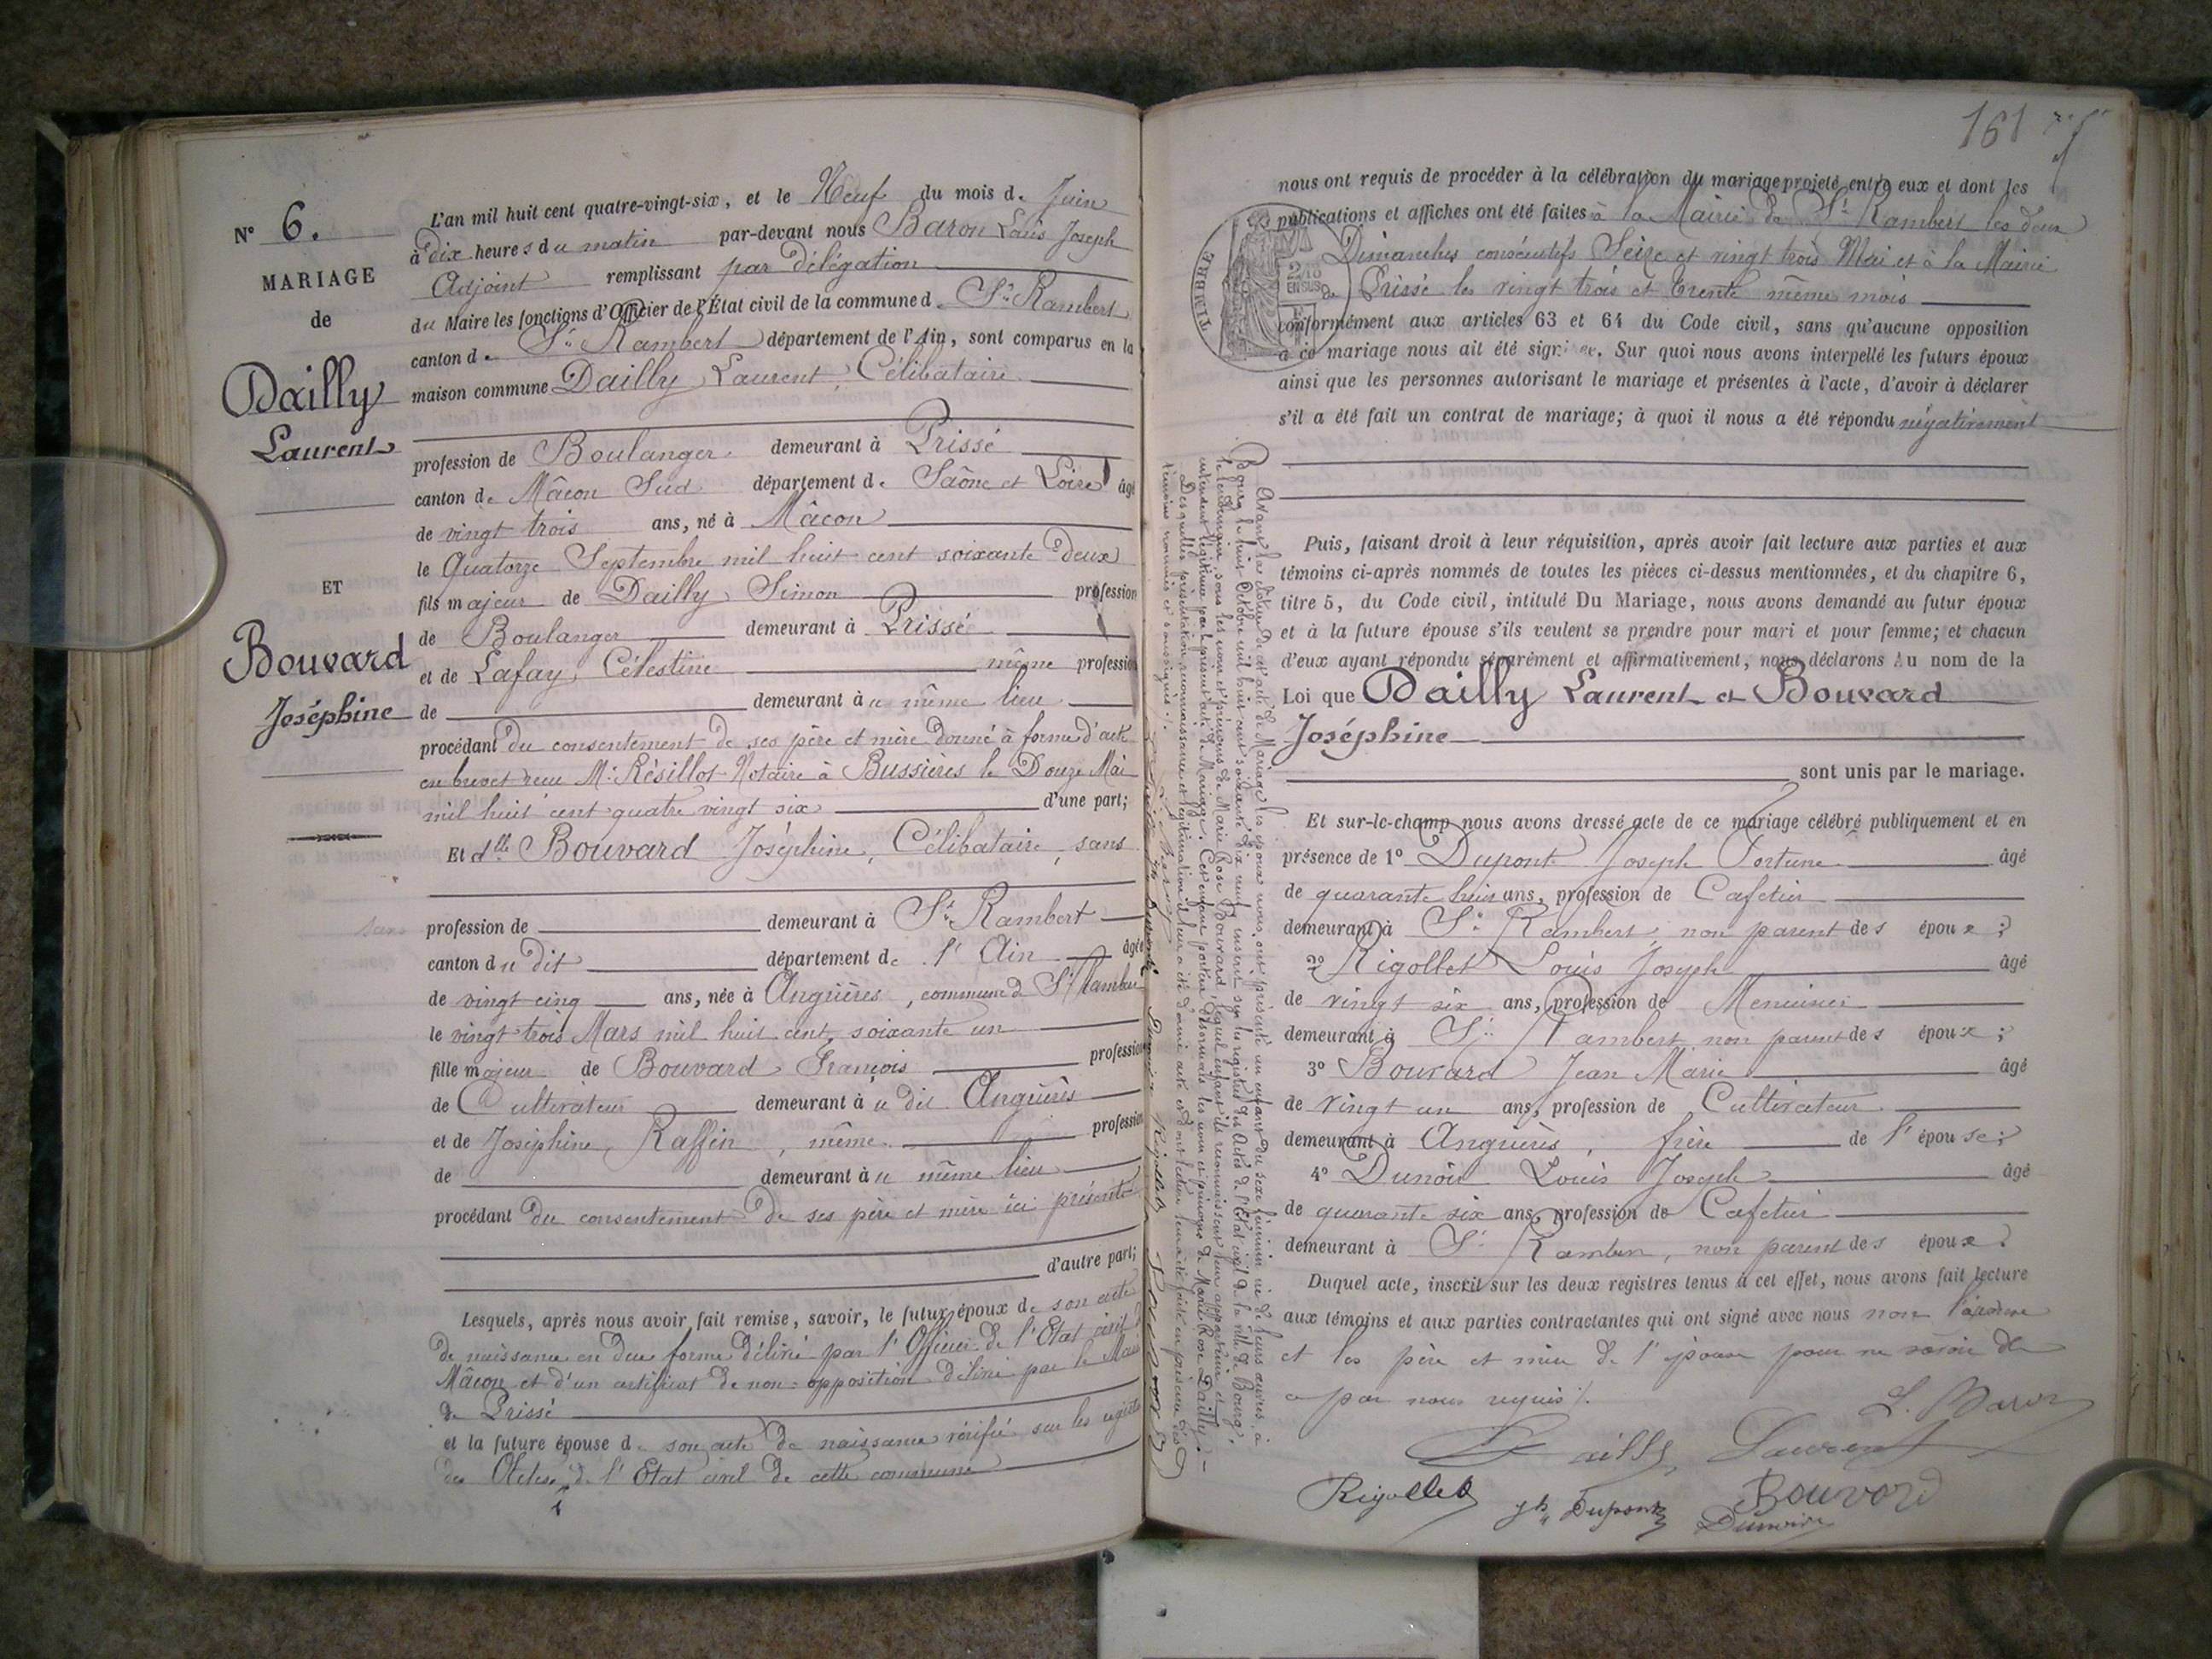 N° 6.
MARIAGE
de
Dailly
Laurent
ET
Bouvard
Joséphine
L'an mil huit cent quatre-vingt-six, et le Neuf du mois de Juin
à dix heures du matin par-devant nous Baron Louis Joseph
Adjoint remplissant par délégation
du Maire les fonctions d'Officier de l'État civil de la commune de St Rambert
canton de St Rambert département de l'Ain, sont comparus en la
maison commune Dailly Laurent, Célibataire
profession de Boulanger demeurant à Prissé
canton de Mâcon Sud département de Saône et Loire âgé
de vingt trois ans, né à Mâcon
le Quatorze Septembre mil huit cent soixante deux
fils majeur de Dailly Simon profession
de Boulanger demeurant à Prissé
et de Lafay, Célestine même profession
de demeurant au même lieu
procédant du consentement de ses père et mère donné à forme d'acte
en brevet reçu Me Résillot Notaire à Bussières le Douze Mai
mil huit cent quatre vingt six d'une part;
Et dlle Bouvard Joséphine, Célibataire, sans
sans profession de demeurant à St Rambert
canton du dit département de l'Ain âgée
de vingt cinq ans, née à Angrières, commune de St Rambert
le vingt trois Mars mil huit cent soixante un
fille majeur de Bouvard François profession
de Cultivateur demeurant au dit Angrières
et de Joséphine Raffin, même profession
de demeurant au même lieu
procédant du consentement de ses père et mère ici présents
d'autre part;
Lesquels, après nous avoir fait remise, savoir, le futur époux de son acte
de naissance en due forme délivré par l'Officier de l'Etat civil de
Mâcon et d'un certificat de non-opposition délivré par le Maire
de Prissé
et la future épouse de son acte de naissance vérifié sur les registres
des Actes de l'Etat civil de cette commune
161
nous ont requis de procéder à la célébration du mariage projeté entre eux et dont les
publications et affiches ont été faites à la Mairie de St Rambert les deux
Dimanches consécutifs Seize et vingt trois Mai et à la Mairie
de Prissé les vingt trois et trente même mois
TIMBRE
conformément aux articles 63 et 64 du Code civil, sans qu'aucune opposition
à ce mariage nous ait été signifiée. Sur quoi nous avons interpellé les futurs époux
ainsi que les personnes autorisant le mariage et présentes à l'acte, d'avoir à déclarer
s'il a été fait un contrat de mariage; à quoi il nous a été répondu négativement
Puis, faisant droit à leur réquisition, après avoir fait lecture aux parties et aux
témoins ci-après nommés de toutes les pièces ci-dessus mentionnées, et du chapitre 6,
titre 5, du Code civil, intitulé Du Mariage, nous avons demandé au futur époux
et à la future épouse s'ils veulent se prendre pour mari et pour femme; et chacun
d'eux ayant répondu séparément et affirmativement, nous déclarons Au nom de la
Loi que Dailly Laurent et Bouvard
Joséphine
sont unis par le mariage.
Et sur-le-champ nous avons dressé acte de ce mariage célébré publiquement et en
présence de 1° Dupont Joseph Fortuné âgé
de quarante huit ans, profession de Cafetier
demeurant à St Rambert, non parent des époux;
2° Rigollet Louis Joseph âgé
de vingt six ans, profession de Menuisier
demeurant à St Rambert non parent des époux;
3° Bouvard Jean Marie âgé
de vingt un ans, profession de Cultivateur
demeurant à Angrières, frère de l'épouse;
4° Dunoir Louis Joseph âgé
de quarante six ans, profession de Cafetier
demeurant à St Rambert, non parent des époux.
Duquel acte, inscrit sur les deux registres tenus à cet effet, nous avons fait lecture
aux témoins et aux parties contractantes qui ont signé avec nous non l'épouse
et les père et mère de l'épouse pour ne savoir de
ce par nous requis /.
L. Baron
Dailly Laurent
Rigollet Jh Dupont Bouvard
Dunoir
Avant la clôture de cet acte de Mariage les époux nous ont présenté un enfant du sexe féminin né de leurs œuvres à
Bourg le huit Octobre mil huit cent quatre inscrit sur les registres des Actes de l'Etat civil de la ville de Bourg,
le lendemain sous les noms et prénoms de Marie Rose Bouvard, lequel enfant ils reconnaissent leur appartenir et
entendent légitimer par le présent acte de Mariage. Cet enfant portera désormais les nom et prénoms de Marie Rose Dailly.
Desquelles présentation, reconnaissance et légitimation il leur a été donné acte et dont lecture leur a été faite en présence des
témoins nommés et soussignés /.